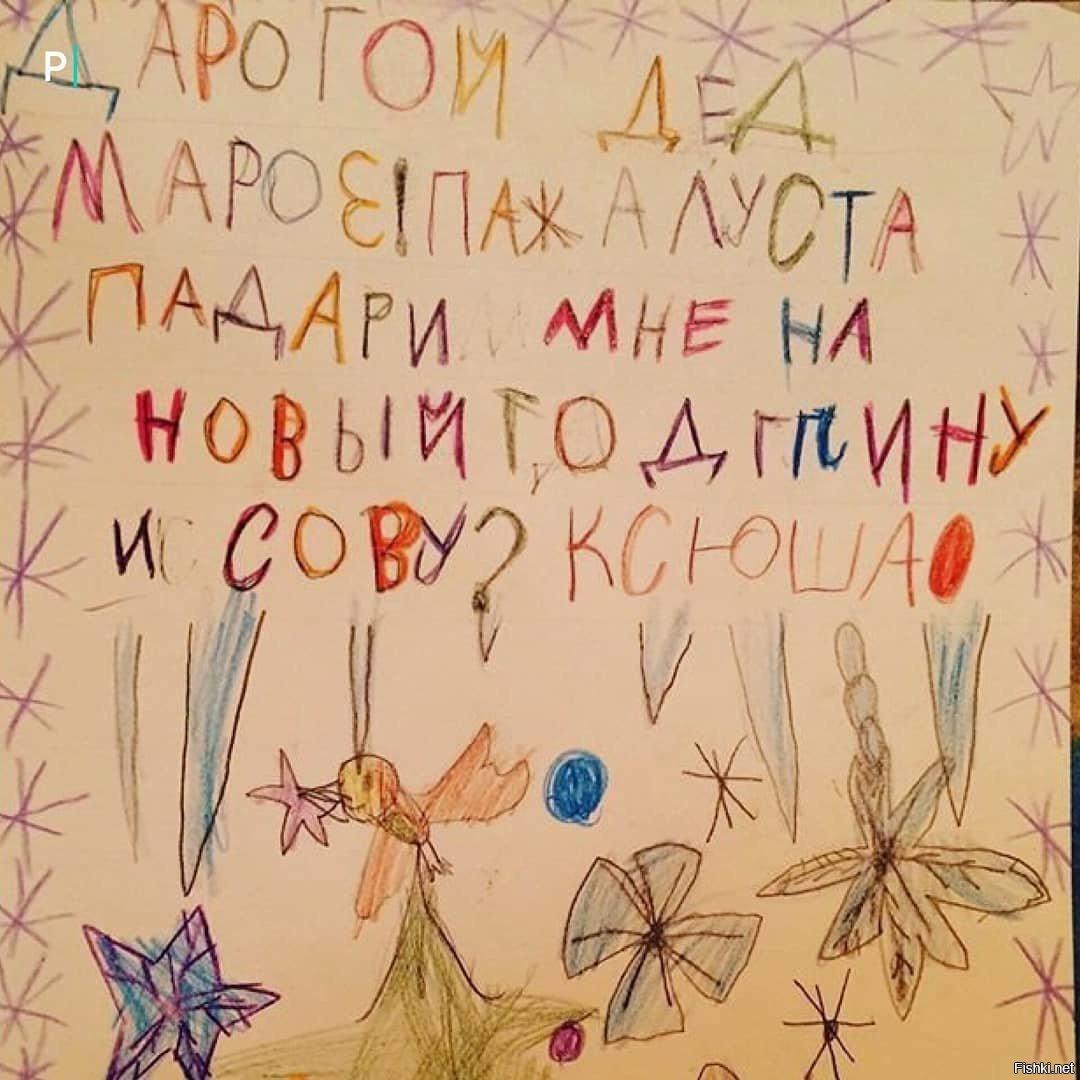 P|
ДАРОГОЙ ДЕД
МАРОЗ! ПАЖАЛУСТА
ПАДАРИ МНЕ НА
НОВЫЙ ГОД ГЛИНУ
И СОВУ? КСЮША
Fishki.net